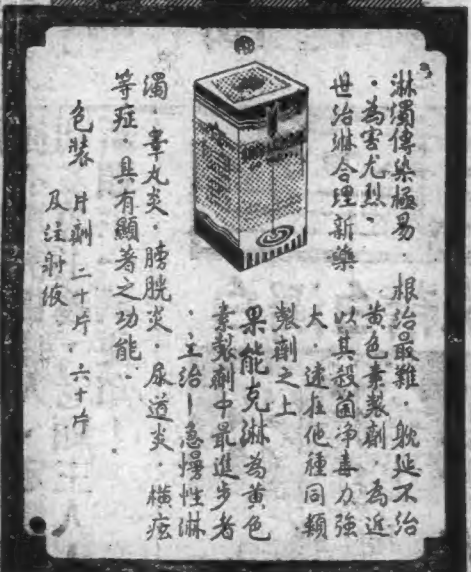 淋濁傳染極易·根治最難·躭延不治
·為害尤烈·黃色素製劑·為近
世治淋合理新藥以其殺菌净毒力強
大·遠在他種同類
製劑之上
果能克淋為黃色
素製劑中最進步者
·主治—急慢性淋
濁·睾丸炎·膀胱炎·尿道炎·橫痃
等症·具有顯著之功能·
包裝 片劑 二十片·六十片
及注射液